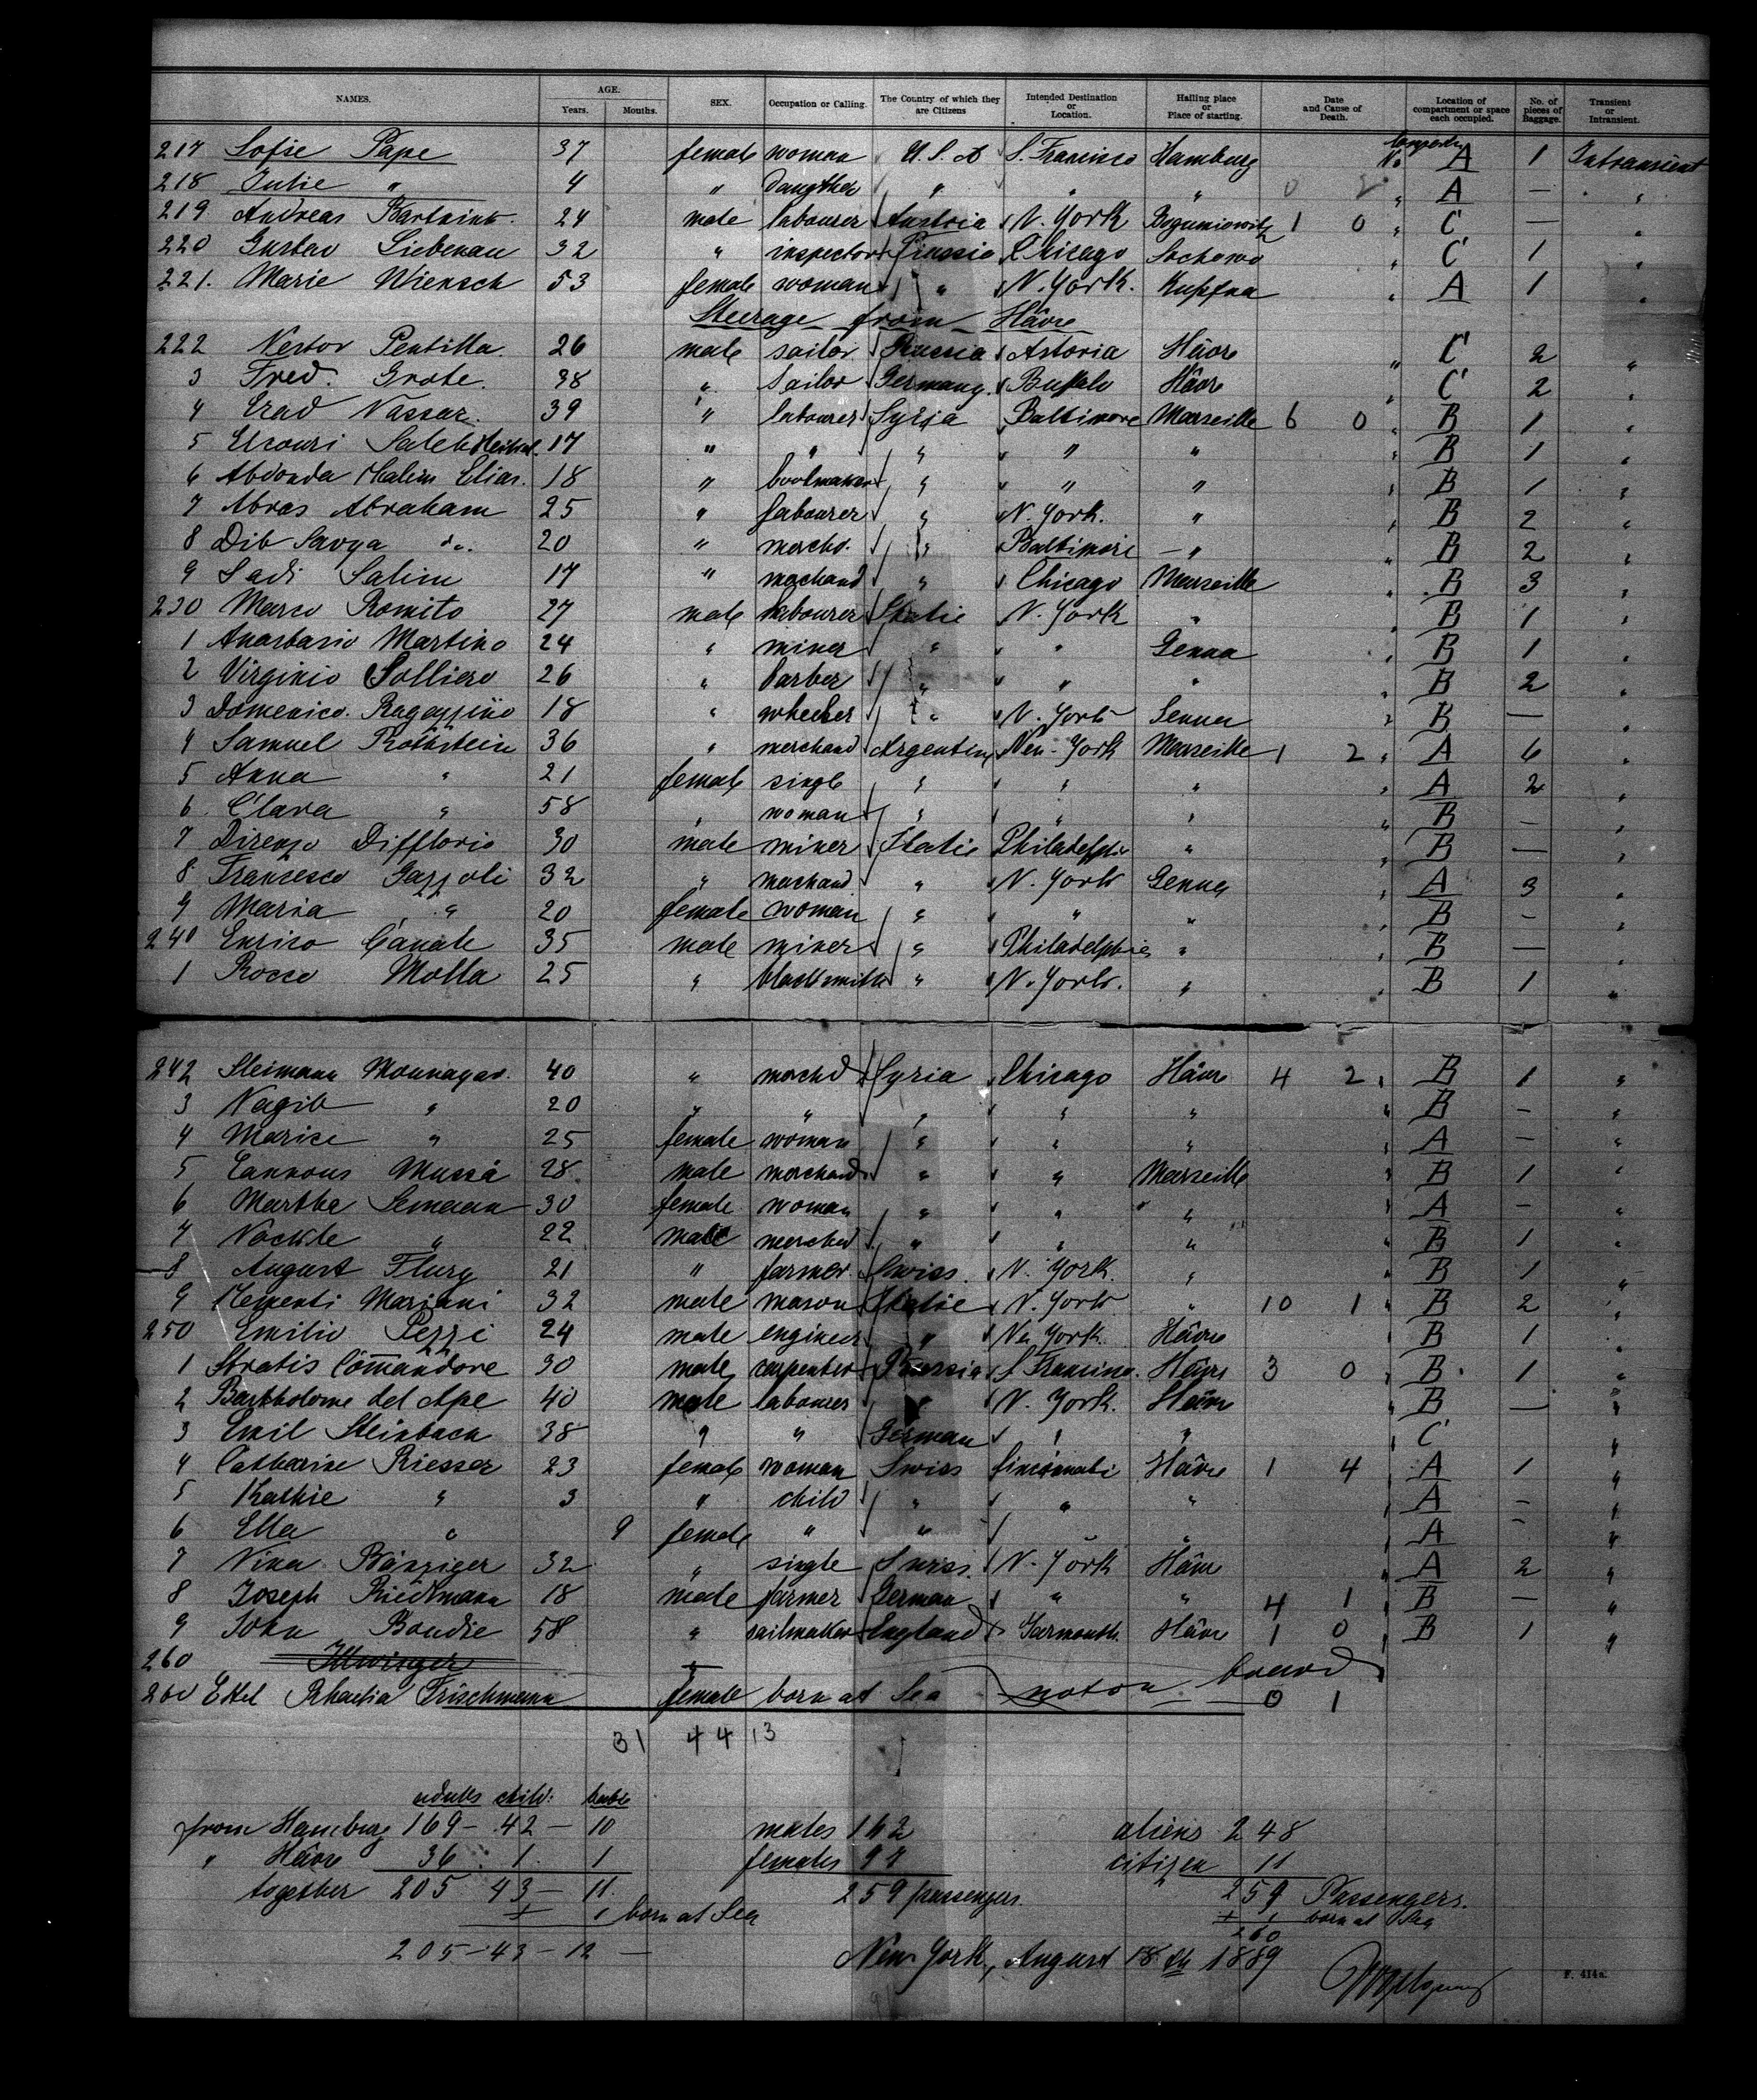 NAMES. AGE. Years. Months. SEX. Occupation or Calling. The Country of which they are Citizens Intended Destination or Location. Hailing place or Place of starting. Date and Cause of Death. Location of compartment or space each occupied. No. of pieces of Baggage. Transient or Intransient.
217 Sofie Pape 37 female woman U. S. A S. Francisco Hamburg No A 1 Intransient
218 Julie " 4 " daugther " " " 0 2 " A — "
219 Andreas 24 male labourer Austria N. York 1 0 " C —  "
220 Gustav Siebenau 32 " inspector Prussia Chicago Sochowo " C 1 "
221. Marie Wiensch 53 female woman " N. York. " A 1 "
Steerage from Hâvre
222 Nestor Pentilla 26 male sailor Russia Astoria Hâvre " C 2 "
3 Fred. Grote. 38 " sailor Germany. Buffalo Hâvre " C 2 "
4 Erad Nassar. 39 " labourer Syria Baltimore Marseille 6 0 " B 1 "
5 Elcouri Saleb 17 " " " " " " B 1 "
6 Abdonda Halim Elias. 18 " " " " " B 1 "
7 Abras Abraham 25 " labourer " N. York. " " B 2 "
8 Dib Savya do. 20 " merchd. " Baltimore — " " B 2 "
9 Sadi Salim 17 " machand " Chicago Marseille " B 3 "
230 Marco Romito 27 male labourer Italie N. York " " B 1 "
1 Anastasio Martino 24 " miner " " Genua " B 1 "
2 Virginio Solliero 26 " barber " " " " B 2 "
3 Domenico. Ragozzino 18 " " N. York Genua " B — "
4 Samuel Rothstein 36 " merchand Argentin New-York Marseille 1 2 " A 6 "
5 Anna " 21 female single " " " " A 2 "
6. Clara " 58 " woman " " " " B — "
7 Direnzo Difflorio 30 male miner Italie Philadelphia " " B — "
8. Francesco Gazzoli 32 " machand. " N. York Genua " A 3 "
9 Maria " 20 female woman " " " " B - "
240 Enrico Canale 35 male miner " Philadelphia " " B — "
1 Rocco Molla 25 " blacksmith " N. York. " " B 1 "
242 Sleimann Mounayar. 40 " merchd Syria Chicago Hâvre 4 2 " B 1 "
3 Nagib " 20 " " " " " " B - "
4 Marice " 25 female woman " " " " A — "
5 Tannous Mussá 28 male merchand " " Marseille " B 1 "
6 Martha Semaan 30 female woman " " " " A - "
7 " 22 male merchd " " " " B 1 "
8 August Flury 21 " farmer Swiss. N. York. " " B 1 "
9 Mariani 32 male mason Italie N. York " 10 1 " B 2 "
250 Emilio Pezzi 24 male engineer " New York. Hâvre B 1 "
1 Stratis Comandore 30 male carpenter Russia S. Francisco. Hâvre 3 0 " B. 1 "
2 Bartholome del Ape 40 male labourer " N. York. Hâvre " B — "
3 Emil Steinbach 38 " " German " " " C "
4 Catharine Riesser 23 female woman Swiss Cincinnati Hâvre 1 4 " A 1 "
5 Kathie " 3 " child " " " " A - "
6 Ella " 9 female " " " " " A - "
7 Nina Bänziger 32 " single Swiss. N. York Hâvre " A 2 "
8 Joseph Riedmann 18 male farmer German " " 4 1 " B — "
9 John Bondie 58 " sailmaker England Yarmouth. Hâvre 1 0 " B 1 "
260 not on board
260 Ettel Rhaetia Frischmann female born at Sea 0 1
31 44 13
adults child: babie
from Hamburg 169 - 42 — 10 males 162 aliens 248
" Hâvre 36 1 1 females 97 citizen 11
together 205 43 — 11. 259 passengers. 259 Passengers.
+ 1 born at Sea + 1 born at Sea
260
205 - 43 - 12 — New York, August 18th 1889
F. 414a.